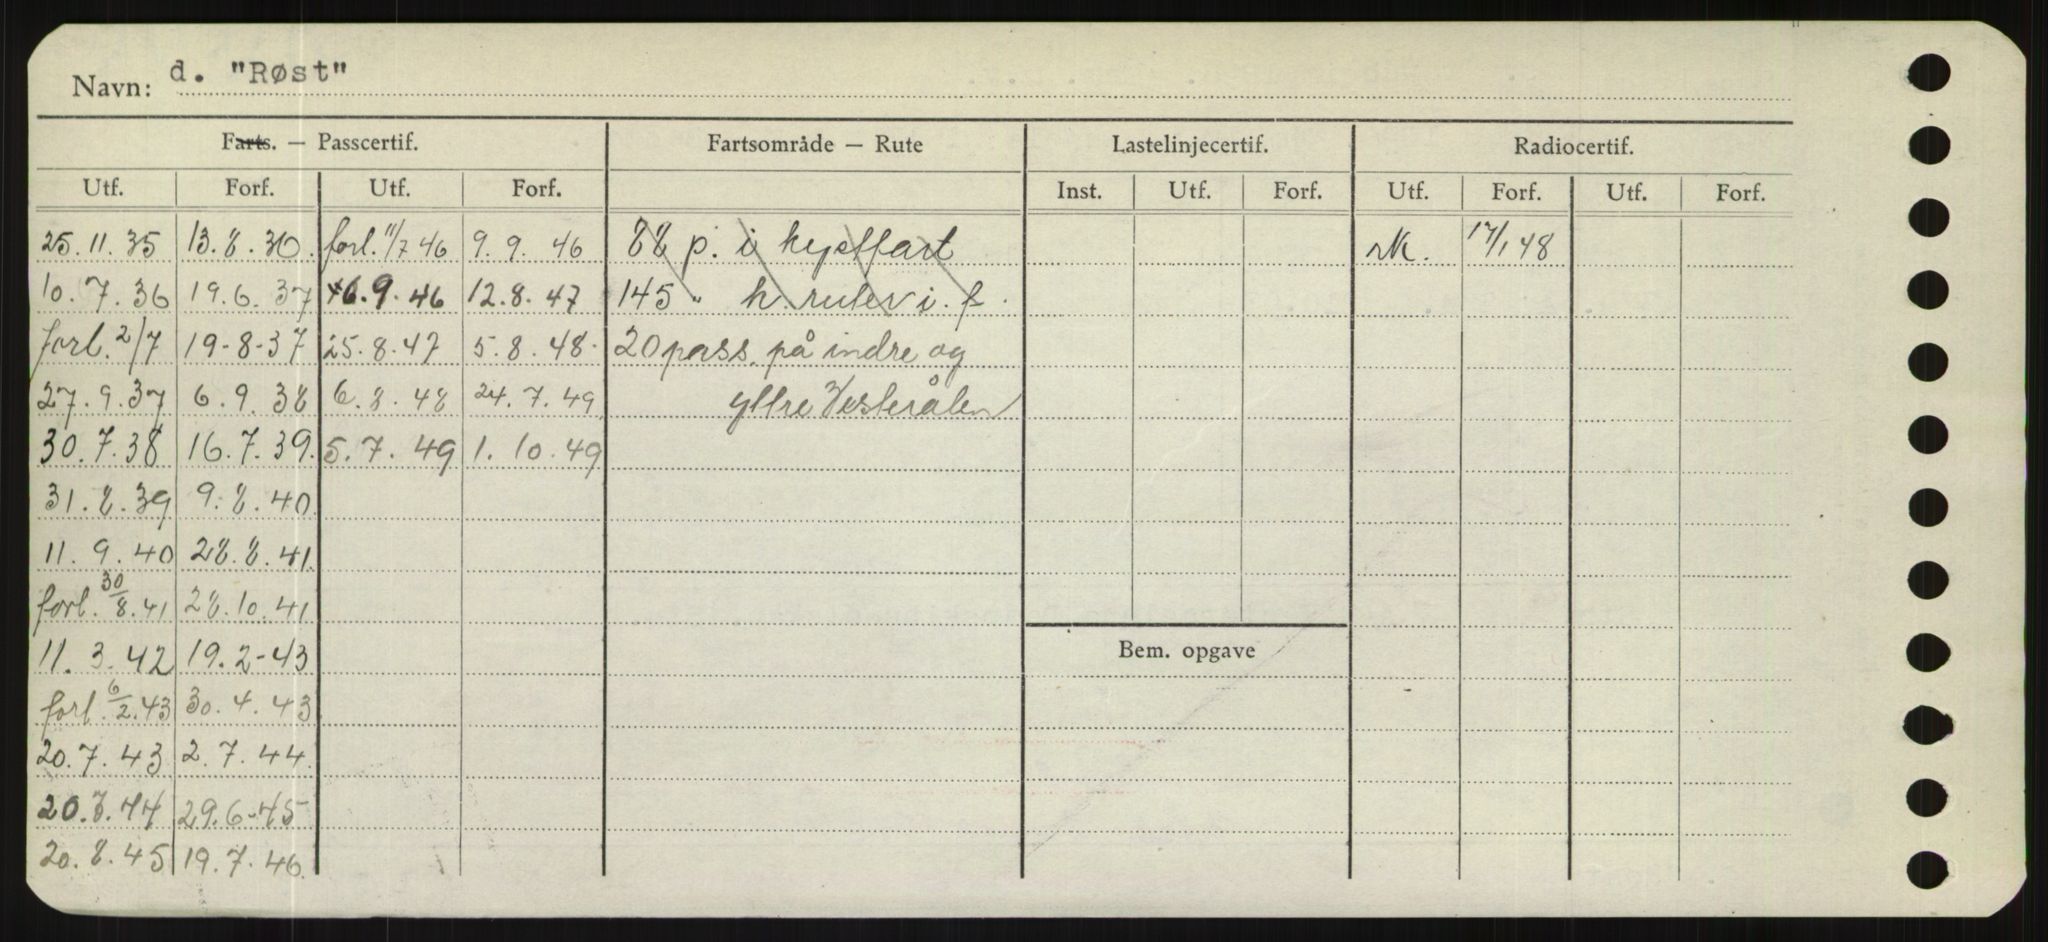 Navn: d. "Røst"
Farts. — Passcertif. Fartsområde — Rute Lastelinjecertif. Radiocertif.
Utf. Forf. Utf. Forf. Inst. Utf. Forf. Utf. Forf. Utf. Forf.
25.11.35 13.8.36. forl. 11/7 46 9.9.46 88 p. i kystfart rk. 17/1 48
10.7.36 19.6.37 6.9.46 12.8.47 145 " h. ruter i. f.
forl. 2/7 19-8-37 25.8.47 5.8.48. 20 pass. på indre og
27.9.37 6.9.38 6.8.48 24.7.49 yttre Vesterålen
30.7.38 16.7.39. 5.7.49 1.10.49
31.8.39 9.8.40
11.9.40 28.8.41.
forl. 30/8.41 28.10.41
11.3.42 19.2-43 Bem. opgave
forl. 6/2.43 30.4.43
20.7.43 2.7.44
20.7.44 29.6-45
20.8.45 19.7.46.